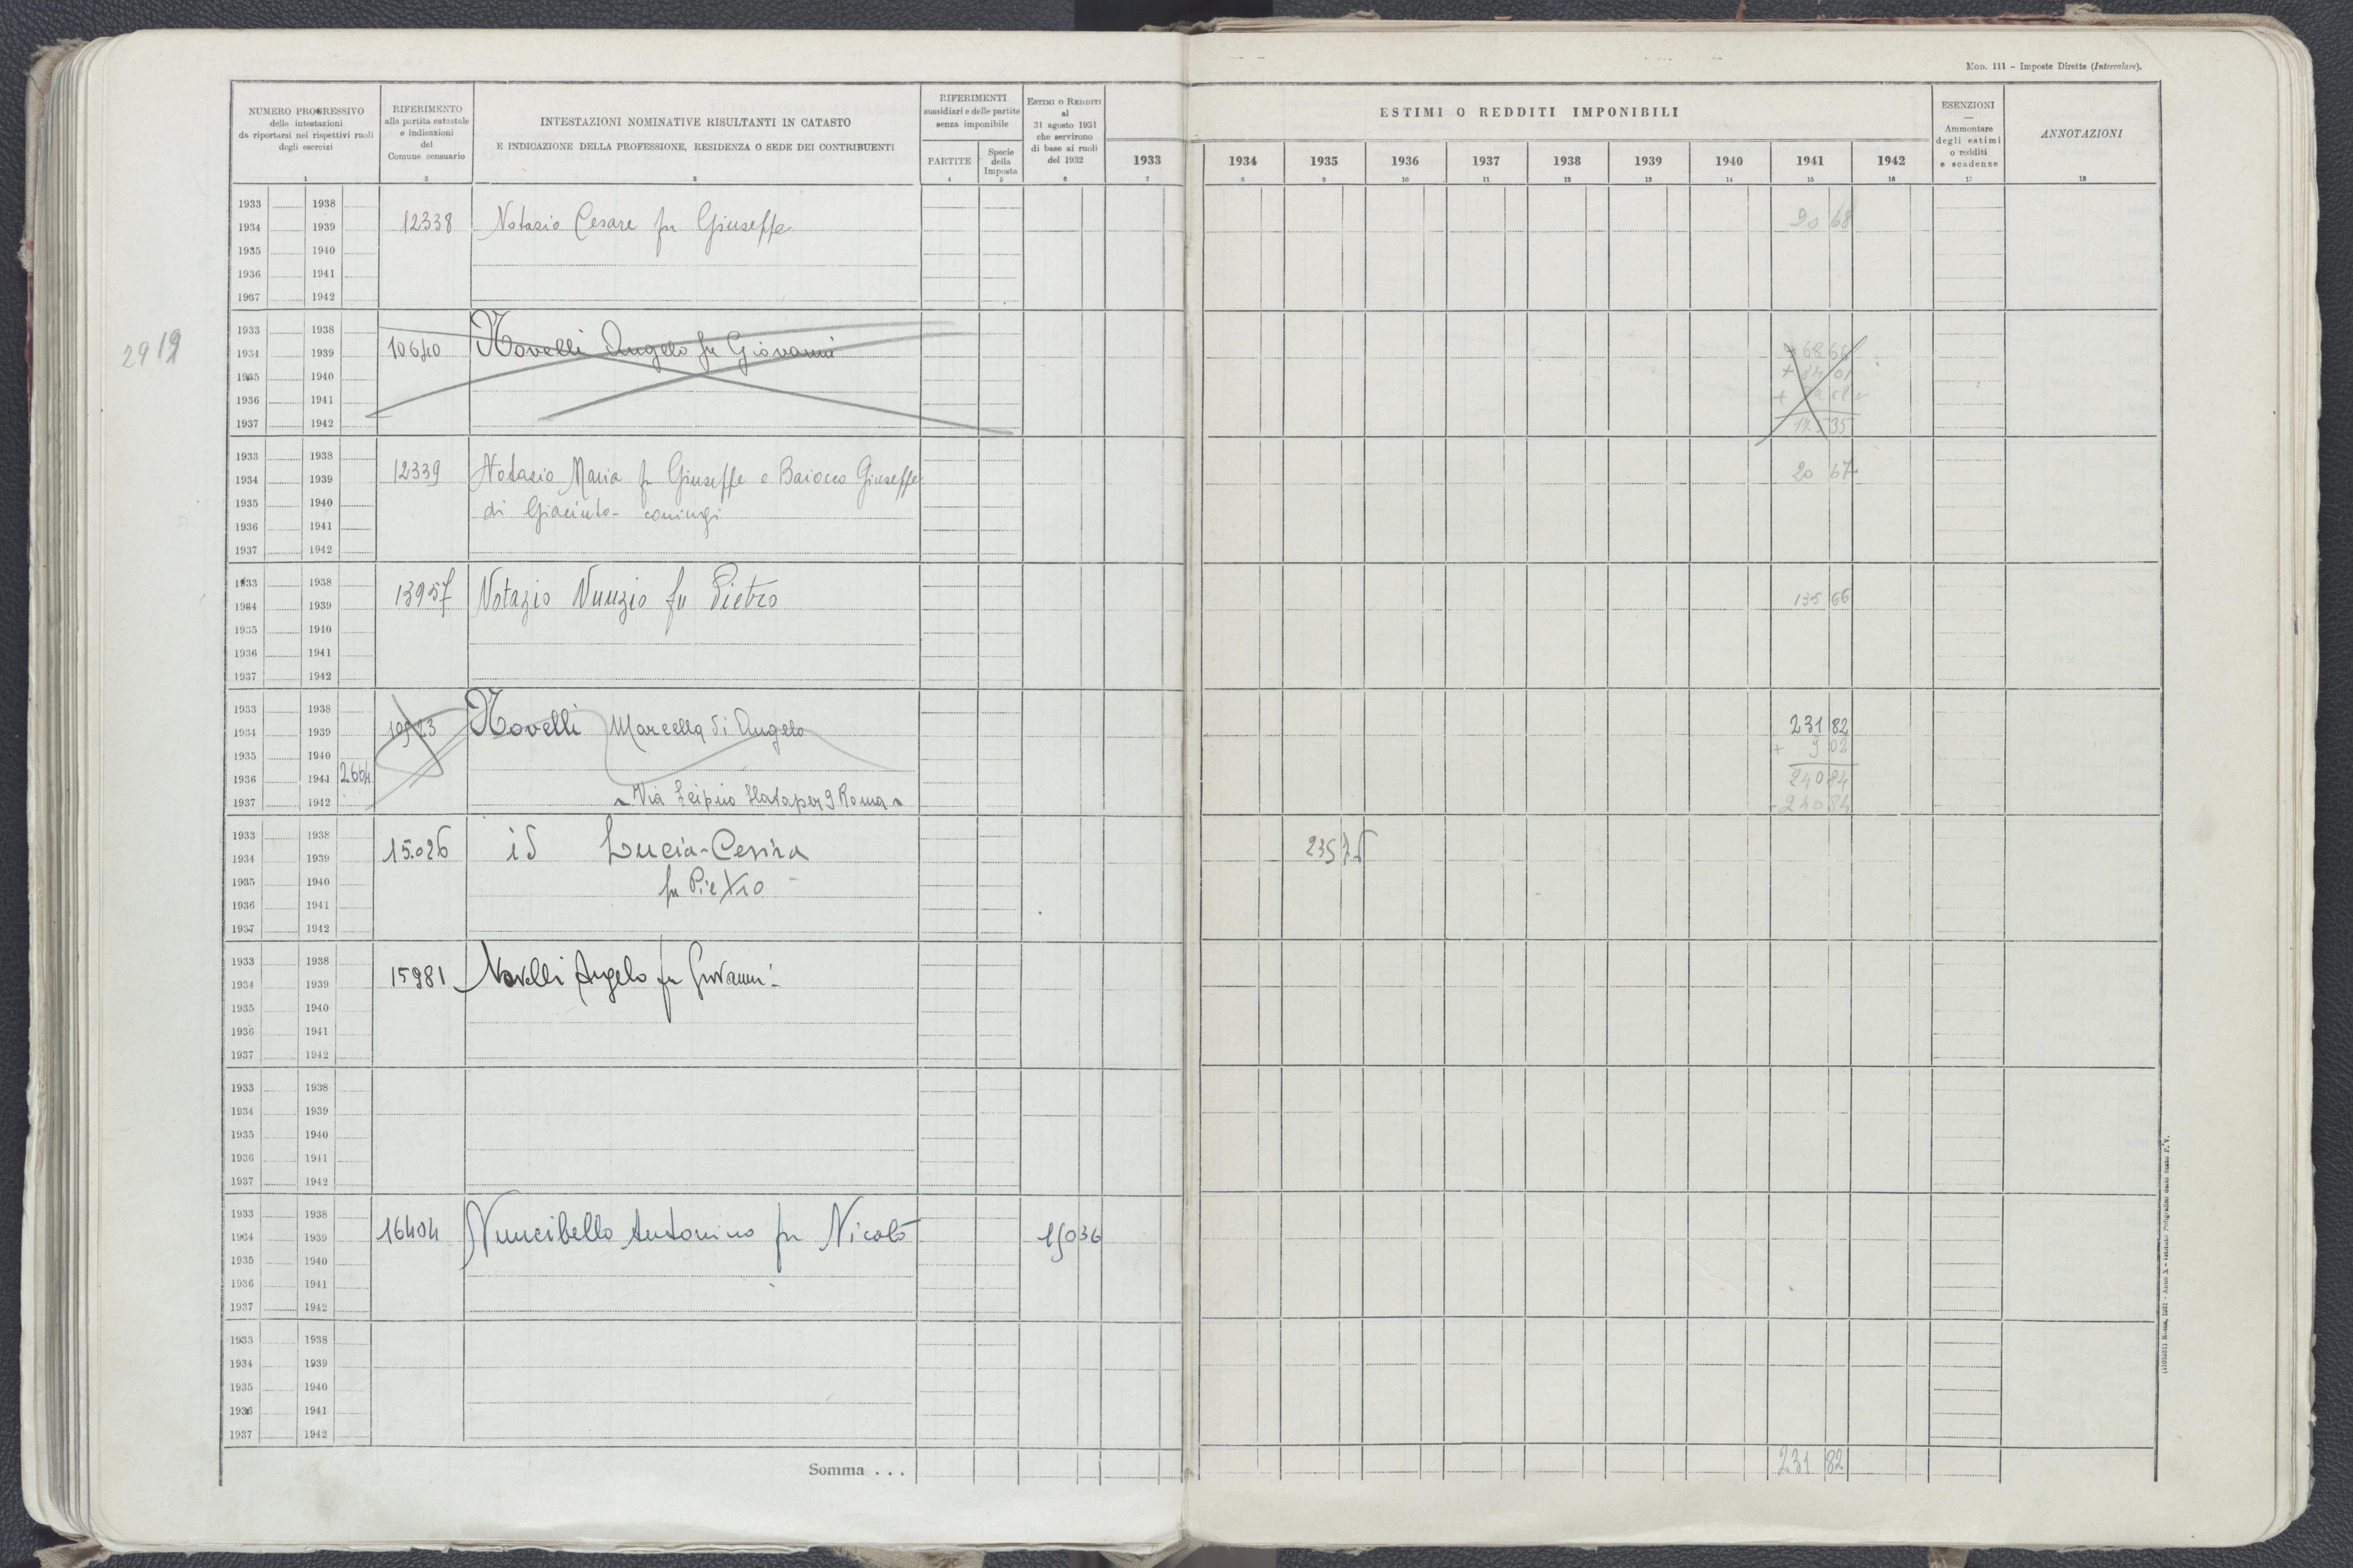 Mod. 111 - Imposte Dirette (Intercalare).
NUMERO PROGRESSIVO
delle intestazioni
da riportarsi nei rispettivi ruoli
degli esercizi
1
RIFERIMENTO
alla partita catastale
e indicazioni
del
Comune censuario
2
INTESTAZIONI NOMINATIVE RISULTANTI IN CATASTO
E INDICAZIONE DELLA PROFESSIONE, RESIDENZA O SEDE DEI CONTRIBUENTI
3
RIFERIMENTI
sussidiari e delle partite
senza imponibile
PARTITE
4
Specie
della
Imposta
5
ESTIMI O REDDITI
al
31 agosto 1931
che servirono
di base ai ruoli
del 1932
6
ESTIMI O REDDITI IMPONIBILI
1933 1934 1935 1936 1937 1938 1939 1940 1941 1942
7 8 9 10 11 12 13 14 15 16
ESENZIONI
Ammontare
degli estimi
o redditi
e scadenze
17
ANNOTAZIONI
18
1933 1938
1934 1939 12338 Notazio Cesare fu Giuseppe 90 68
1935 1940
1936 1941
1937 1942
1933 1938
2919 1934 1939 10640 Novelli Angelo fu Giovanni 68 66
1935 1940 + 34 01
1936 1941
1937 1942 35
1933 1938
1934 1939 12339 Notazio Maria fu Giuseppe e Baiocco Giuseppe 20 67
1935 1940 di Giacinto - coniugi
1936 1941
1937 1942
1933 1938
1934 1939 13957 Notazio Nunzio fu Pietro 135 66
1935 1940
1936 1941
1937 1942
1933 1938
1934 1939 Novelli Marcella di Angelo 231 82
1935 1940 + 9 02
1936 1941 2664 240 84
1937 1942 Via Scipio Slataper 9 Roma - 240 84
1933 1938
1934 1939 15.026 id Lucia-Cesira 235
1935 1940 fu Pietro
1936 1941
1937 1942
1933 1938
1934 1939 15981 Novelli Angelo fu Giovanni
1935 1940
1936 1941
1937 1942
1933 1938
1934 1939
1935 1940
1936 1941
1937 1942
1933 1938
1934 1939 16404 Nuncibello Antonino fu Nicolò 150 36
1935 1940
1936 1941
1937 1942
1933 1938
1934 1939
1935 1940
1936 1941
1937 1942
Somma . . . 231 82